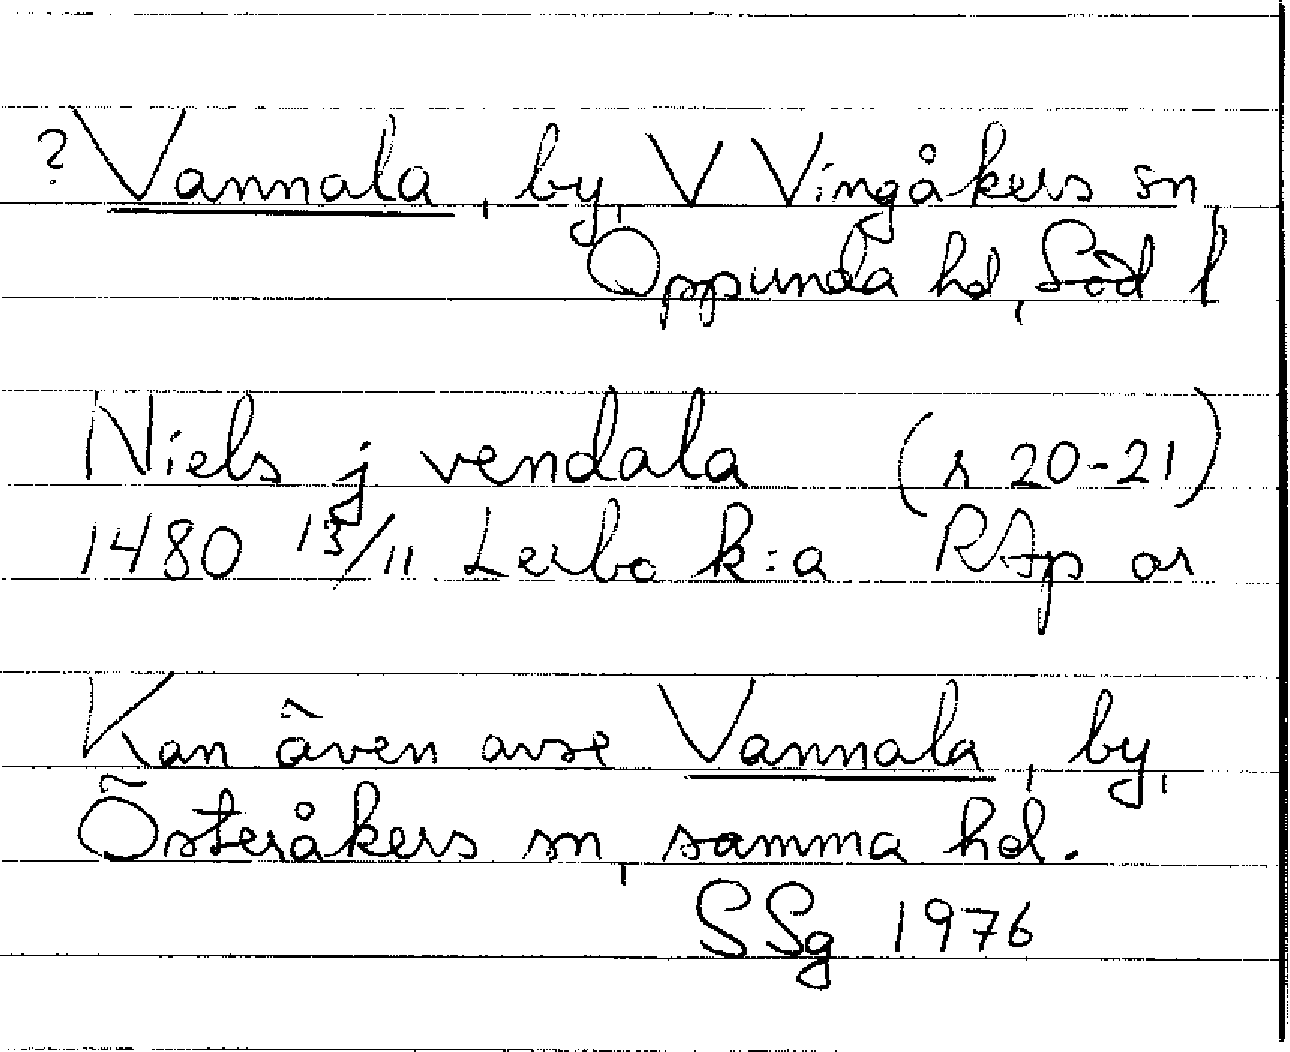 ? Vannala, by, V Vingåkers sn,
Oppunda hd, Söd l
Niels j vendala (s 20-21)
1480 13/11 Lerbo k:a RAp or
Kan även avse Vannala, by,
Österåkers sn, samma hd.
SSg 1976